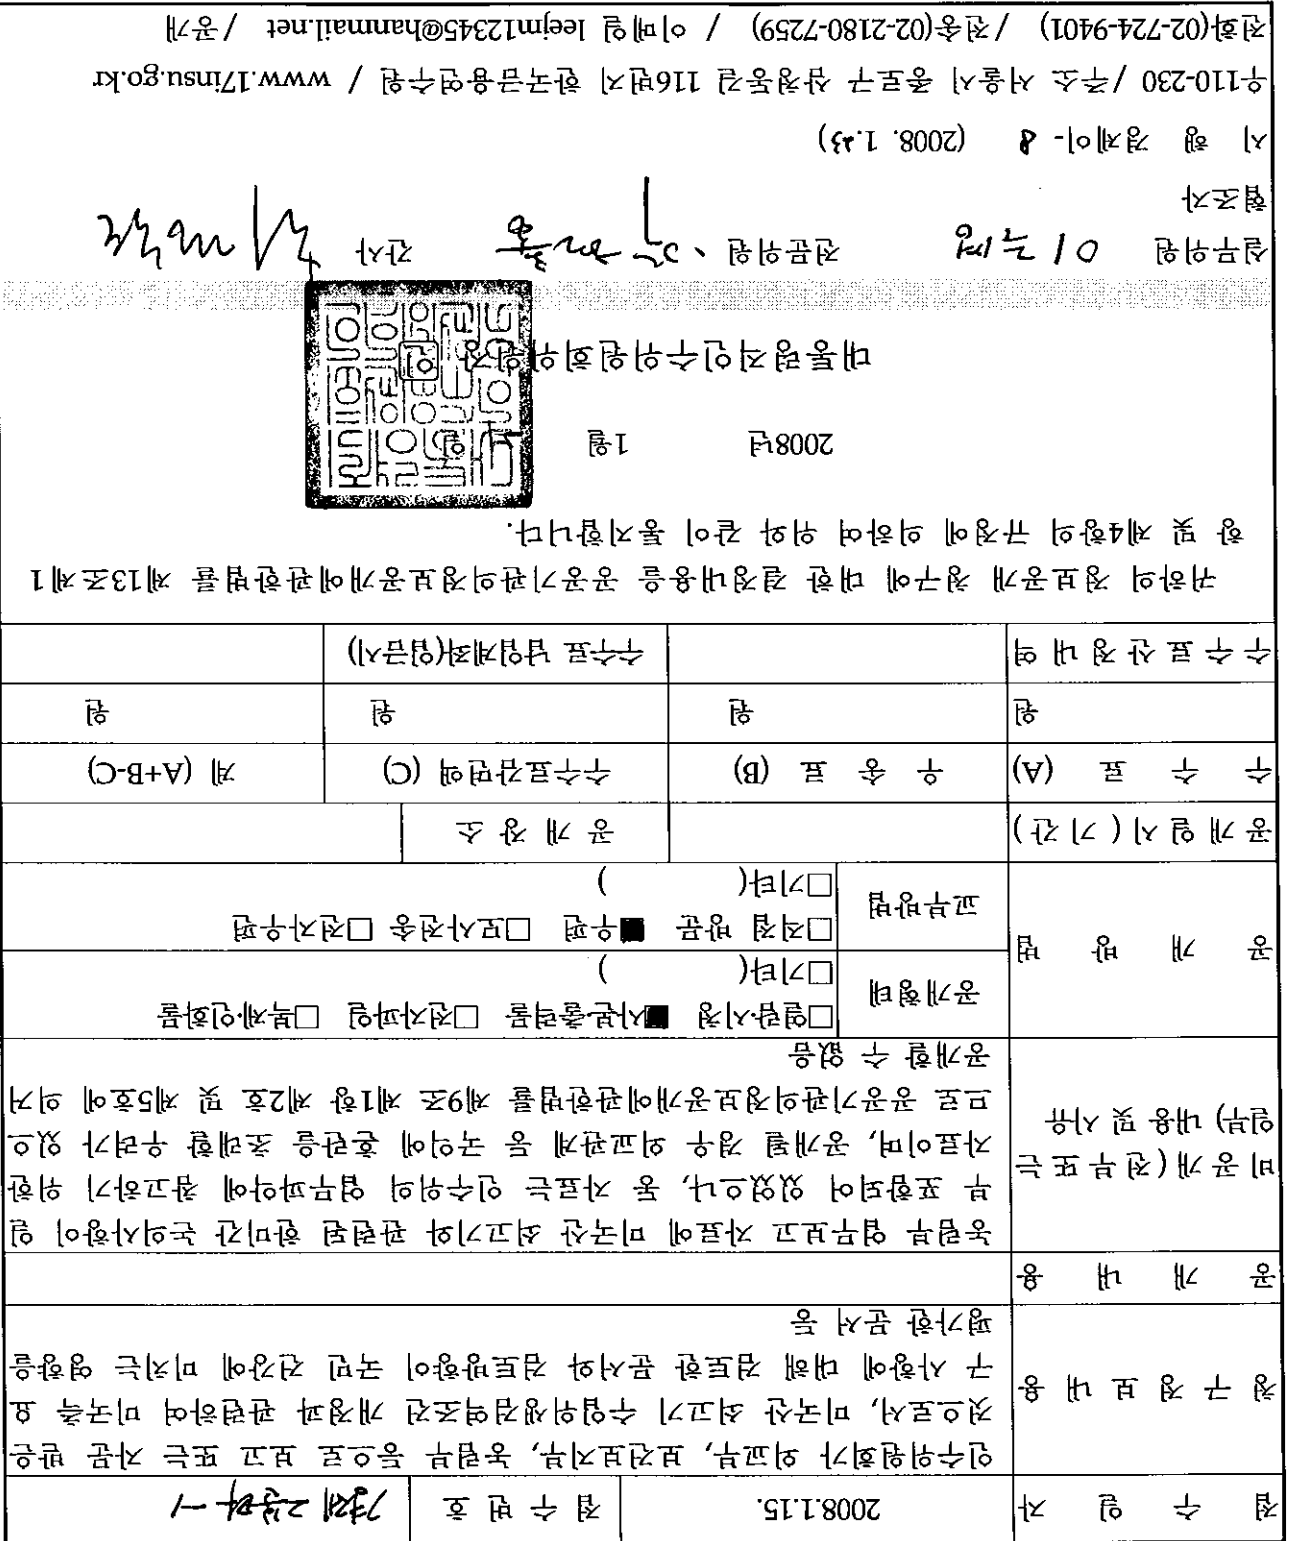 접 수 일 자 2008.1.15. 접 수 번 호
청 구 정 보 내 용
인수위원회가 외교부, 보건복지부, 농림부 등으로 보고 또는 자문 받은
것으로서, 미국산 쇠고기 수입위생검역조건 개정과 관련하여 미국측 요
구 사항에 대해 검토한 문서와 검토방향이 국민 건강에 미치는 영향을
평가한 문서 등
공 개 내 용
비공개(전부 또는
일부) 내용 및 사유
농림부 업무보고 자료에 미국산 쇠고기와 관련된 한미간 논의사항이 일
부 포함되어 있었으나, 동 자료는 인수위의 업무파악에 참고하기 위한
자료이며, 공개될 경우 외교관계 등 국익에 혼란을 초래할 우려가 있으
므로 공공기관의정보공개에관한법률 제9조 제1항 제2호 및 제5호에 의거
공개할 수 없음
공 개 방 법
공개형태
□열람·시청 ■사본·출력물 □전자파일 □복제·인화물
□기타( )
교부방법
□직접 방문 ■우편 □모사전송 □전자우편
□기타( )
공 개 일 시 ( 기 간 ) 공 개 장 소
수 수 료 (A) 우 송 료 (B) 수수료감면액 (C) 계 (A+B-C)
원 원 원 원
수 수 료 산 정 내 역 수수료 납입계좌(입금시)
귀하의 정보공개 청구에 대한 결정내용을 공공기관의정보공개에관한법률 제13조제1
항 및 제4항의 규정에 의하여 위와 같이 통지합니다.
2008년 1월 일
대통령직인수위원회위원장
실무위원 전문위원 간사
협조자
시 행 경제이- 8 (2008. 1.23)
우110-230 /주소 서울시 종로구 삼청동길 116번지 한국금융연수원 / www.17insu.go.kr
전화(02-724-9401) /전송(02-2180-7259) / 이메일 leejm12345@hanmail.net /공개